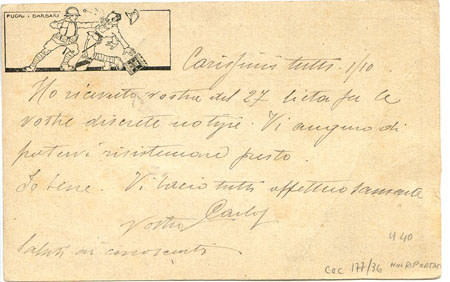 FUORI I BARBARI
Carissimi tutti. 1/10
Ho ricevuto vostra del 27 lieta per le
vostre discrete notizie. Vi auguro di
potervi risistemare presto.
Io bene. Vi bacio tutti affettuosamente
Vostro Carlo
Saluti ai conoscenti
4 40
COC 177/36 NON RIPORTATA